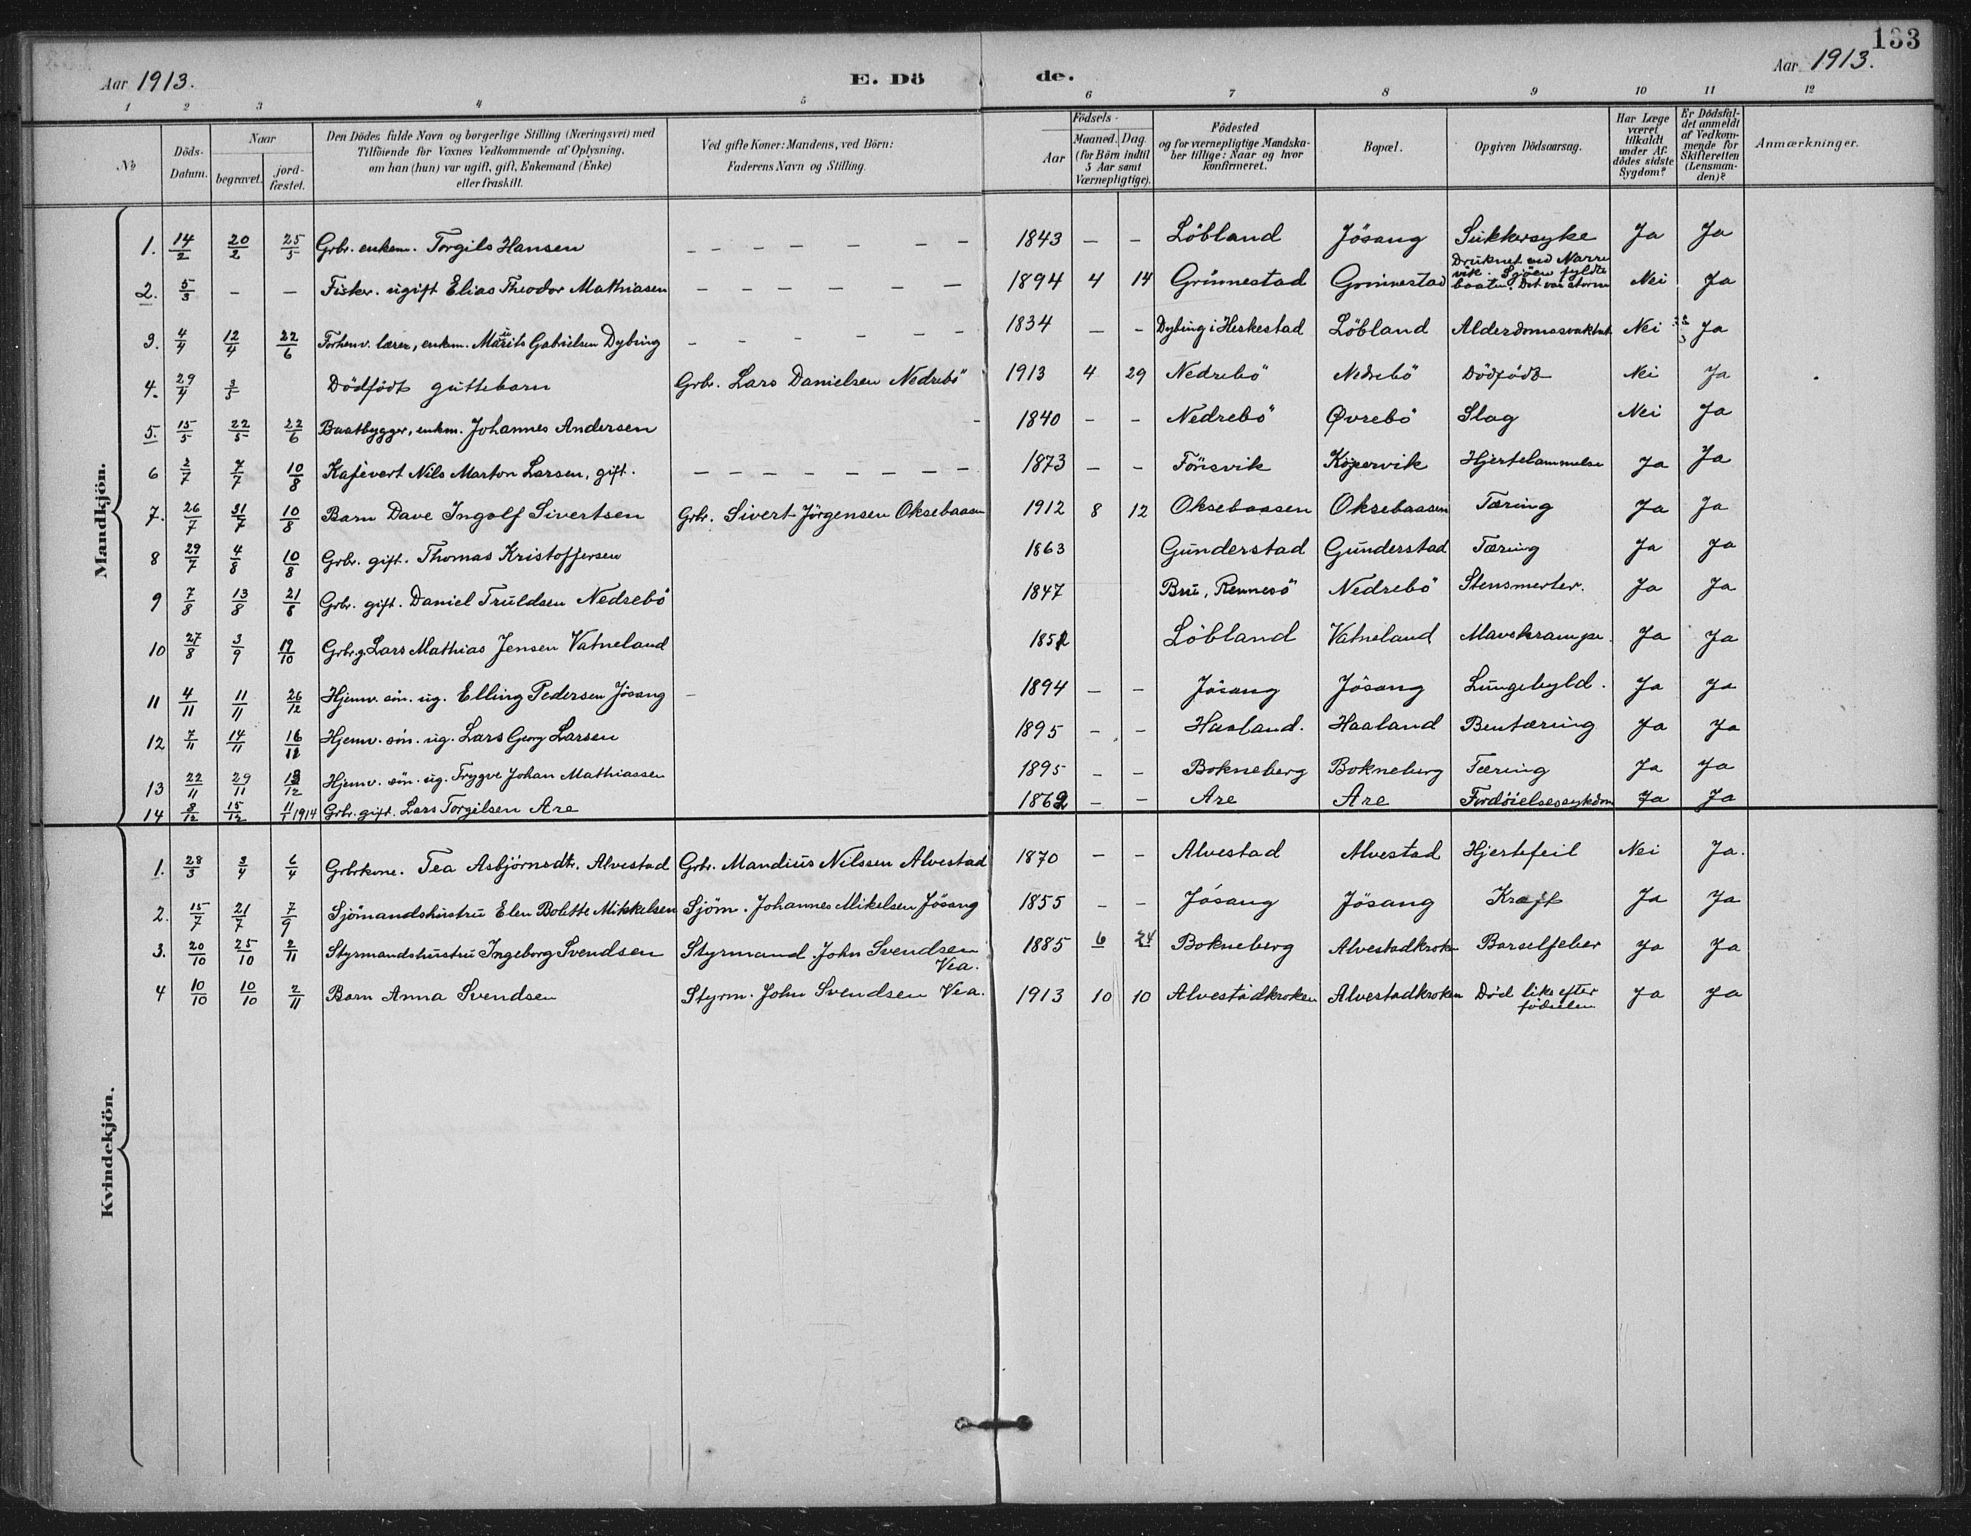 133
Aar 1913.
E. Dö
de.
Aar 1913.
1 2 3 4 5 6 7 8 9 10 11 12
No
Döds-Datum.
Naar
begravet.
jord-fæstet.
Den Dödes fulde Navn og borgerlige Stilling (Næringsvei) med
Tilföiende for Voxnes Vedkommende af Oplysning,
om han (hun) var ugift, gift, Enkemand (Enke)
eller fraskilt.
Ved gifte Koner: Mandens, ved Börn:
Faderens Navn og Stilling.
Födsels-
Aar
Maaned. Dag.
(for Börn indtil
5 Aar samt
Værnepligtige).
Födested
og for værnepligtige Mandska-
ber tillige: Naar og hvor
konfirmeret.
Bopæl.
Opgiven Dödsaarsag.
Har Læge
været
tilkaldt
under Af-
dödes sidste
Sygdom?
Er Dödsfal-
det anmeldt
af Vedkom-
mende for
Skifteretten
(Lensman-
den)?
Anmærkninger.
Mandkjön.
1. 14/2 20/2 25/5 Grbr. enkem. Torgils Hansen – – – – – – – 1843 – – Löbland Jösang Sukkersyke Ja Ja
2. 5/3 – – Fisker. ugift Elias Theodor Mathiasen – – – – – – – 1894 4 14 Grönnestad Grönnestad Druknet ved Narre vik. Sjöen fyldte baaten. Det var storm Nei Ja
3. 4/4 12/4 22/6 Forhenv. lærer, enkm. Maurits Gabrielsen Dybing – – – – – – 1834 – – Dybing i Heskestad Löbland Alderdomssvakhet Nei Ja
4. 29/4 3/5 Dödfödt guttebarn Grbr. Lars Danielsen Nedrebö 1913 4 29 Nedrebö Nedrebö Dödfödt Nei Ja
5. 15/5 22/5 22/6 Baatbygger, enkm. Johannes Andersen – 1840 – – Nedrebö Øvrebö Slag Nei Ja
6 2/7 7/7 10/8 Kafévert Nils Marton Larsen, gift. – – – – – – – – 1873 – – Fönsvik Kopervik Hjertelammelse Ja Ja
7. 26/7 31/7 10/8 Barn Dave Ingolf Sivertsen Grbr. Sivert Jörgensen Oksebaasen 1912 8 12 Oksebaasen Oksebaasen Tæring Ja Ja
8 29/7 4/8 10/8 Grbr. gift. Thomas Kristoffersen 1863 Gunderstad Gunderstad Tæring Ja Ja
9 7/8 13/8 21/8 Grbr. gift. Daniel Truldsen Nedrebö 1847 Bru, Rennesö Nedrebö Stensmerter. Ja Ja
10 27/8 3/9 19/10 Grbr. g. Lars Mathias Jensen Vatneland 1852 Löbland Vatneland Mavekrampe. Ja Ja
11 4/11 11/11 26/12 Hjemv. sön. ug. Elling Pedersen Jösang – 1894 – – Jösang Jösang Lungebyld. Ja Ja
12 7/11 14/11 16/11 Hjemv. sön. ug. Lars Georg Larsen 1895 – – Haaland. Haaland Bentæring Ja Ja
13 22/11 29/11 /12 Hjemv. sön. ug. Trygve Johan Mathiassen 1895 – – Bokneberg Bokneberg Tæring Ja Ja
14 8/12 15/12 11/1 1914 Grbr. gift. Lars Torgilsen Are 1862 – – Are Are Fordöielsessykdom Ja Ja
Kvindekjön.
1. 28/3 3/4 6/4 Grbrkone. Tea Asbjörnsdtr. Alvestad Grbr. Mandius Nilssen Alvestad 1870 – – Alvestad Alvestad Hjertefeil Nei Ja.
2. 15/7 21/7 7/9 Sjömandshustru Elen Bolette Mikkelsen Sjöm. Johannes Mikelsen Jösang 1855 – – Jösang Jösang Kræft Ja Ja
3. 20/10 25/10 2/11 Styrmandshustru Ingeborg Svendsen Styrmand John Svendsen Vea. 1885 6 24 Bokneberg Alvestadkroken Barselfeber Ja Ja
4 10/10 10/10 2/11 Barn Anna Svendsen Styrm. John Svendsen Vea. 1913 10 10 Alvestadkroken Alvestadkroken Död like efter födselen Ja Ja